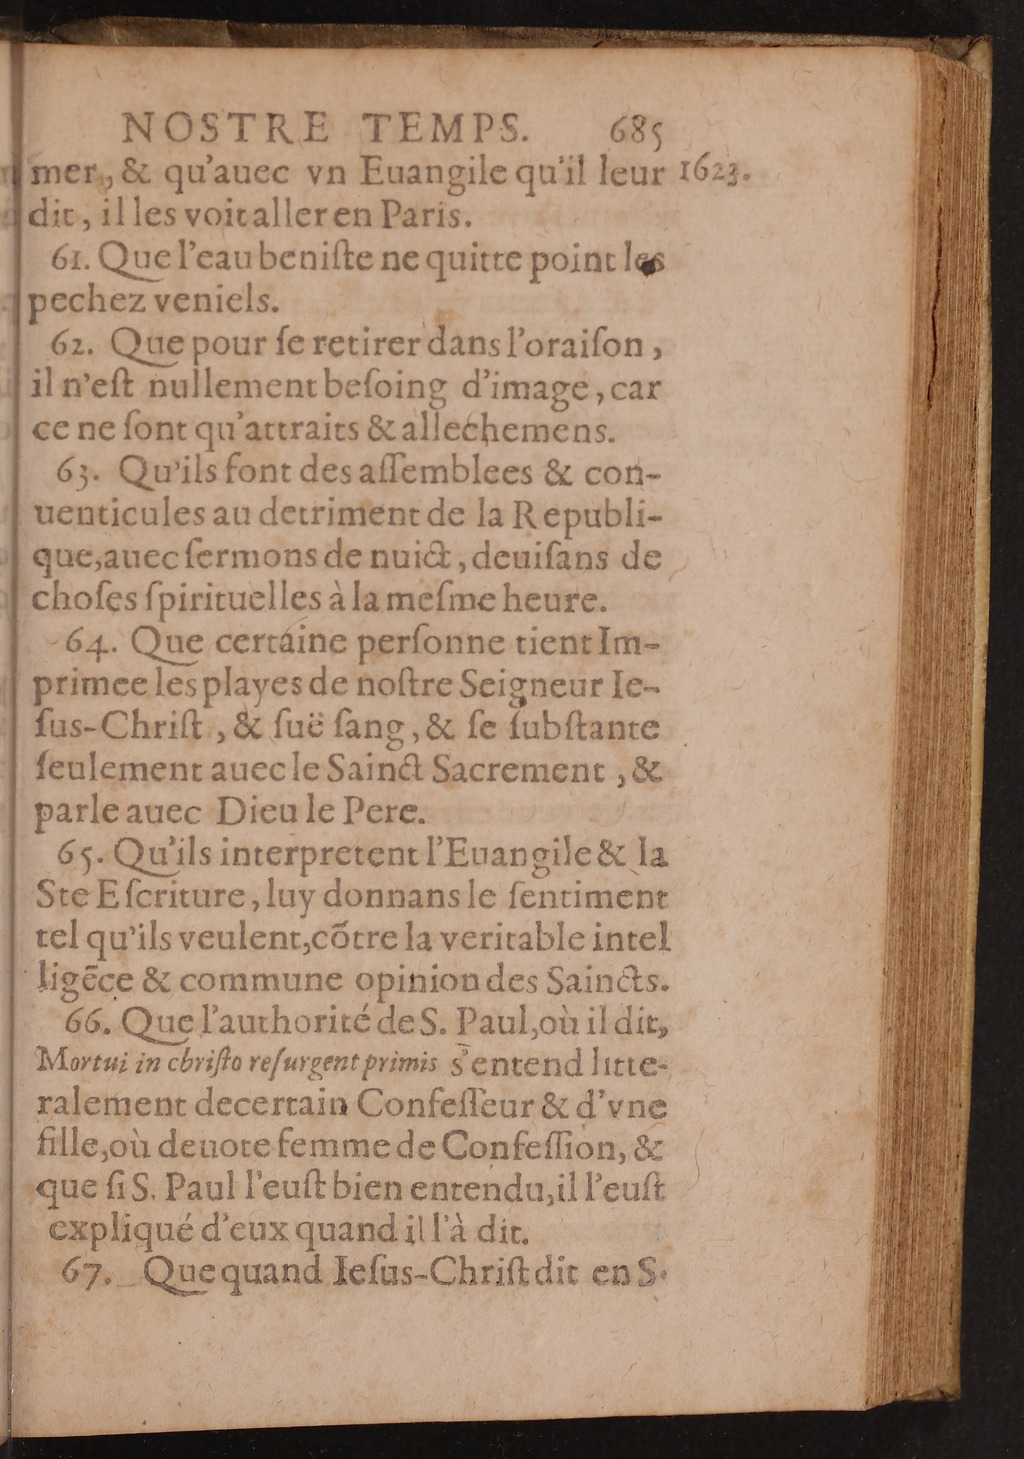 NOSTRE TEMPS. 685
mer, & qu'auec vn Euangile qu'il leur 1623.
dit, il les voit aller en Paris.
61. Que l'eau beniſte ne quitte point les
pechez veniels.
62. Que pour ſe retirer dans l'oraiſon,
il n'eſt nullement beſoing d'image, car
ce ne ſont qu'attraits & allechemens.
63. Qu'ils font des aſſemblees & con-
uenticules au detriment de la Republi-
que, auec ſermons de nuict, deuiſans de
choſes ſpirituelles à la meſme heure.
64. Que certaine perſonne tient Im-
primee les playes de noſtre Seigneur Ie-
ſus-Chriſt, & ſuë ſang, & ſe ſubſtante
ſeulement auec le Sainct Sacrement, &
parle auec Dieu le Pere.
65. Qu'ils interpretent l'Euangile & la
Ste Eſcriture, luy donnans le ſentiment
tel qu'ils veulent, cõtre la veritable intel
ligẽce & commune opinion des Saincts.
66. Que l'authorité de S. Paul, où il dit,
Mortui in chriſto reſurgent primis s'entend litte-
ralement decertain Confeſſeur & d'vne
fille, où deuote femme de Confeſſion, &
que ſi S. Paul l'euſt bien entendu, il l'euſt
expliqué d'eux quand il l'à dit.
67. Que quand Ieſus-Chriſt dit en S.